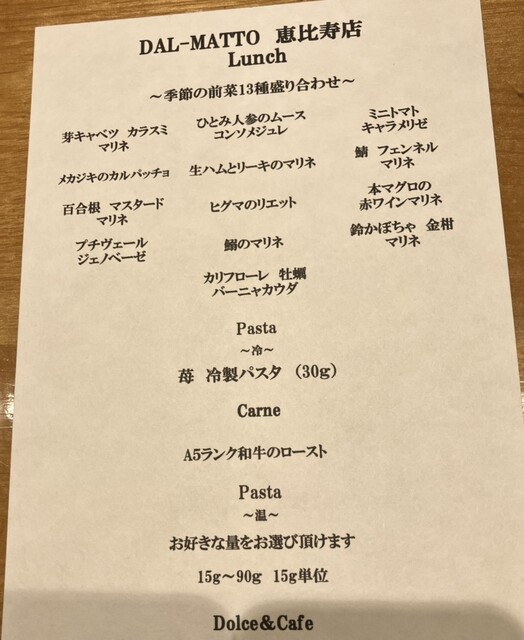 DAL-MATTO 恵比寿店
Lunch
～季節の前菜13種盛り合わせ～
芽キャベツ カラスミ
マリネ
ひとみ人参のムース
コンソメジュレ
ミニトマト
キャラメリゼ
メカジキのカルパッチョ
生ハムとリーキのマリネ
鯖 フェンネル
マリネ
百合根 マスタード
マリネ
ヒグマのリエット
本マグロの
赤ワインマリネ
プチヴェール
ジェノベーゼ
鰯のマリネ
鈴かぼちゃ 金柑
マリネ
カリフローレ 牡蠣
バーニャカウダ
Pasta
～冷～
苺 冷製パスタ （30g）
Carne
A5ランク和牛のロースト
Pasta
～温～
お好きな量をお選び頂けます
15g～90g 15g単位
Dolce&Cafe